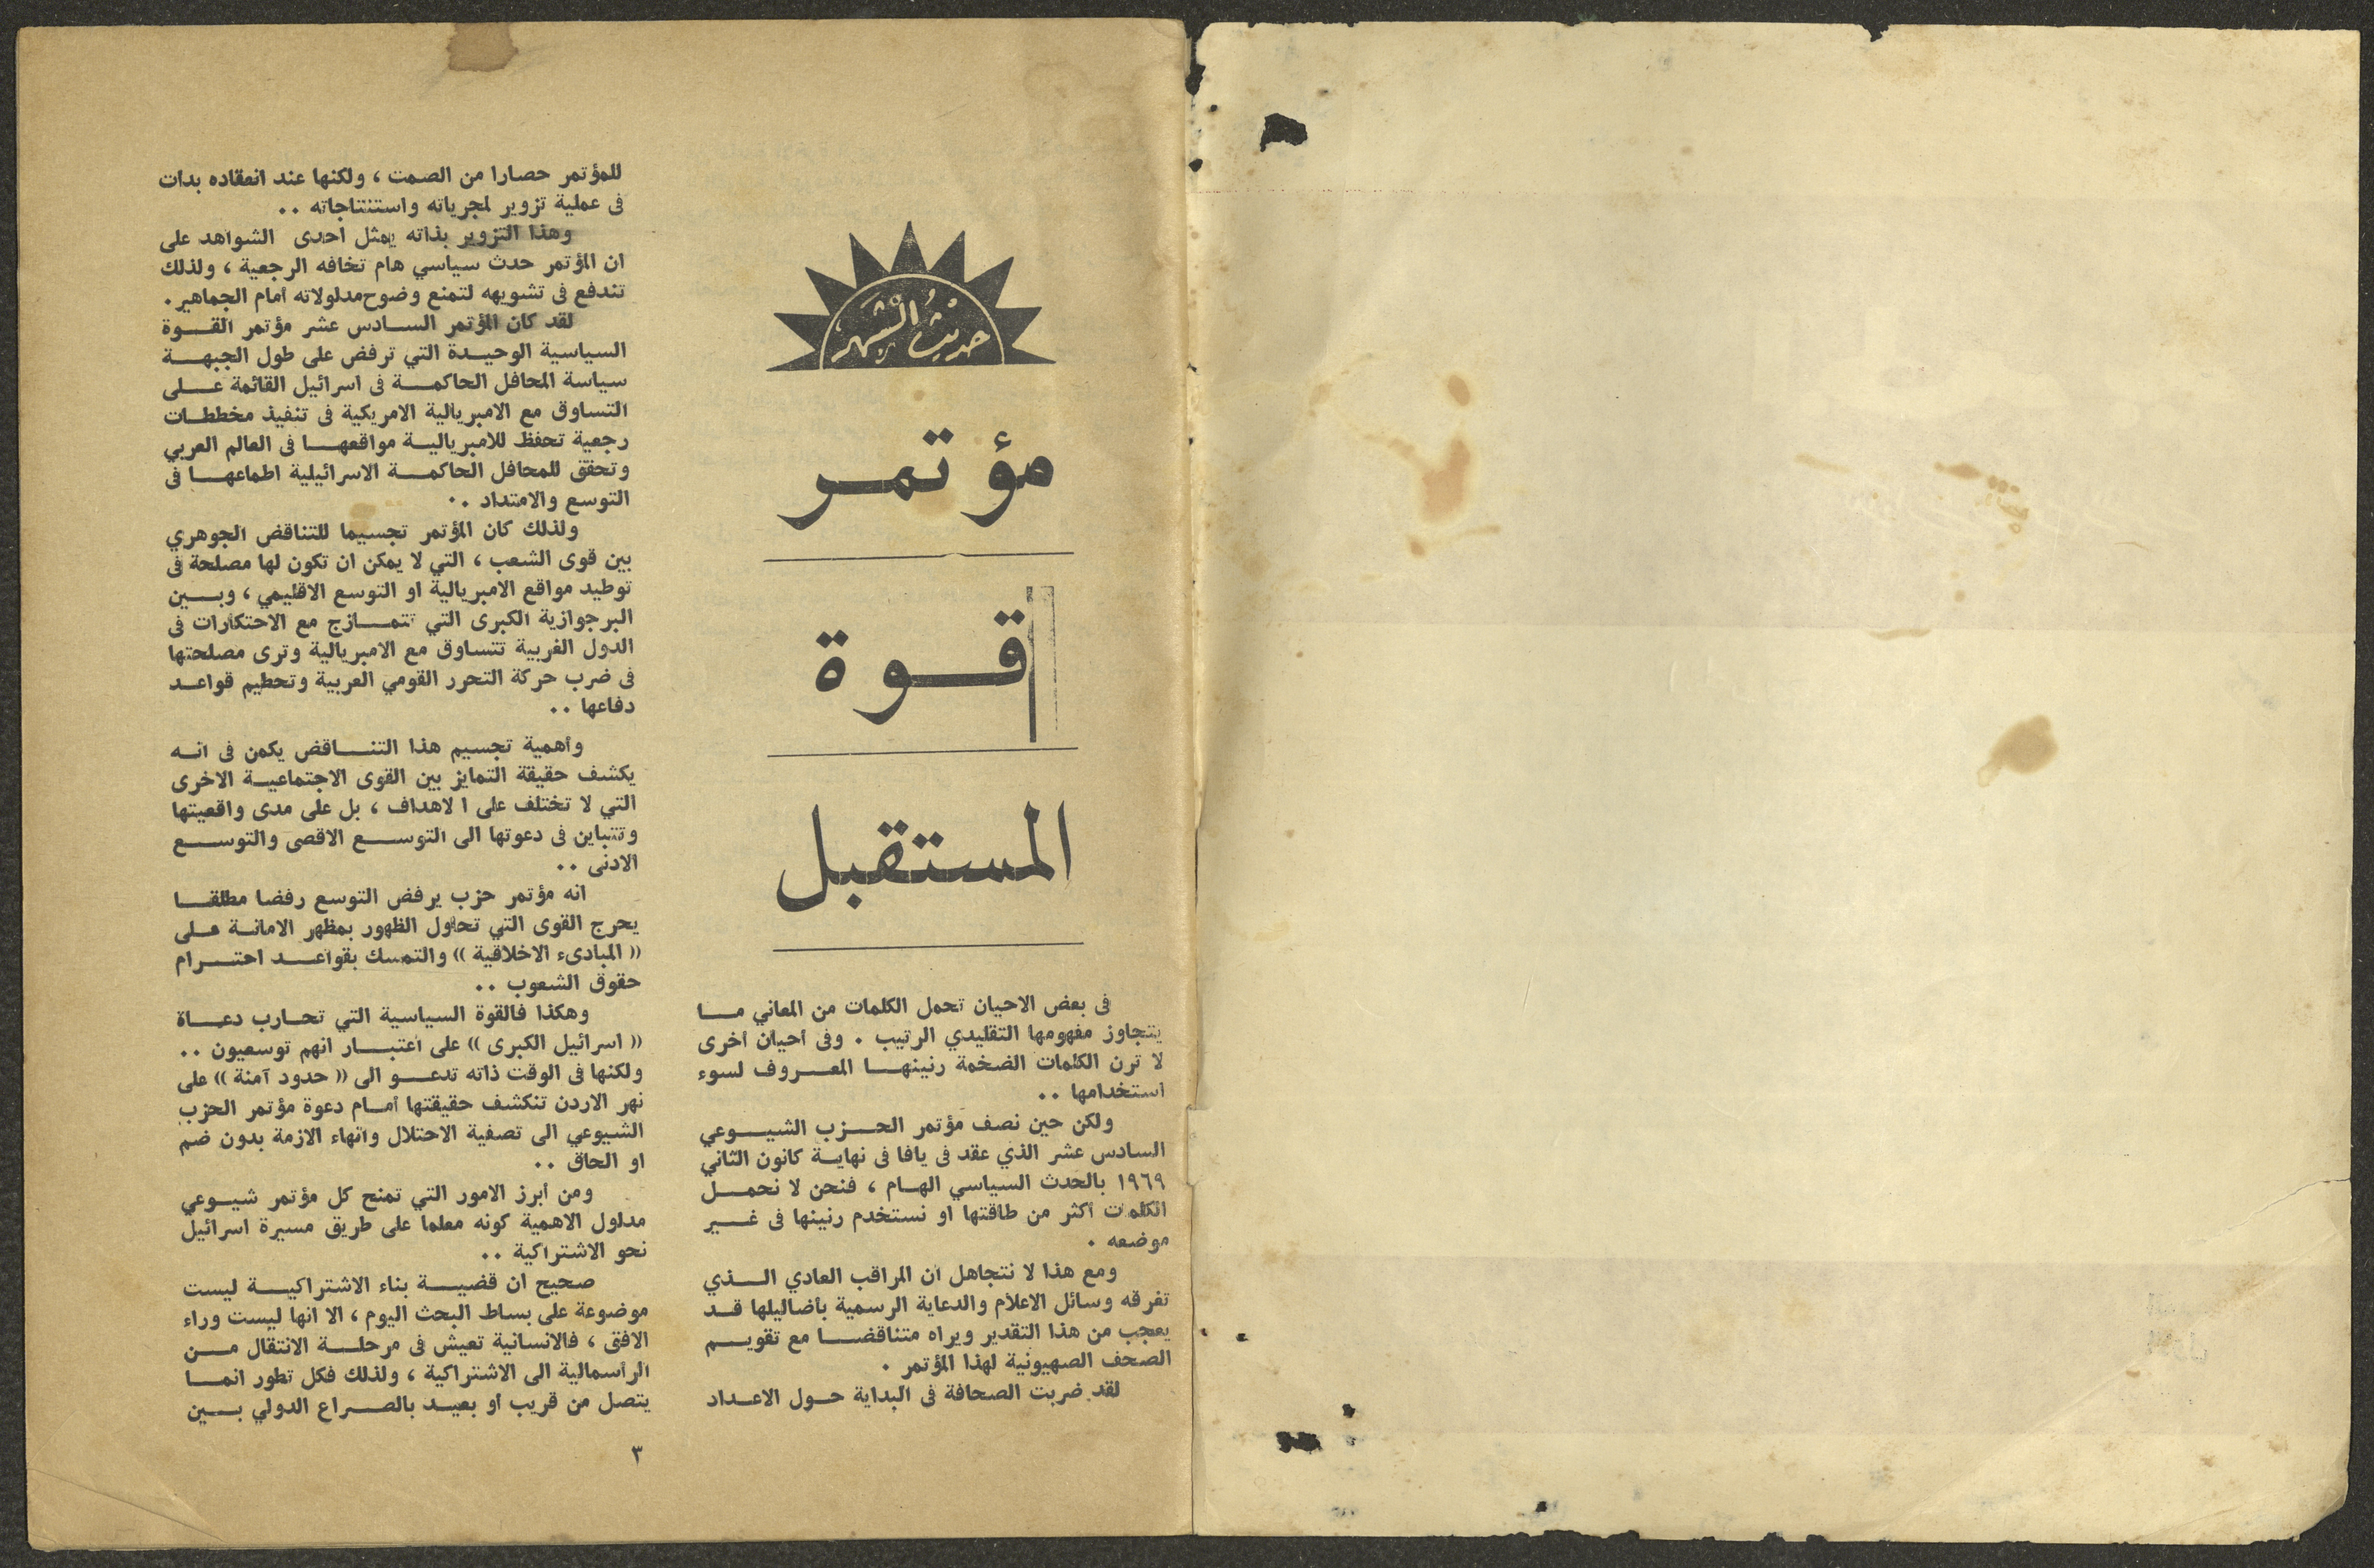 حديث الشهر
مؤتمر
قوة
المستقبل
في بعض الاحيان تحمل الكلمات من المعاني ما
يتجاوز مفهومها التقليدي الرتيب . وفي أحيان أخرى
لا ترن الكلمات الضخمة رنينها المعروف لسوء
استخدامها ..
ولكن حين نصف مؤتمر الحزب الشيوعي
السادس عشر الذي عقد في يافا في نهاية كانون الثاني
١٩٦٩ بالحدث السياسي الهام ، فنحن لا نحمل
الكلمات أكثر من طاقتها او نستخدم رنينها في غير
موضعه .
ومع هذا لا نتجاهل أن المراقب العادي الذي
تغرقه وسائل الاعلام والدعاية الرسمية بأضاليلها قد
يعجب من هذا التقدير ويراه متناقضا مع تقويم
الصحف الصهيونية لهذا المؤتمر .
لقد ضربت الصحافة في البداية حول الاعداد
للمؤتمر حصارا من الصمت ، ولكنها عند انعقاده بدات
في عملية تزوير لمجرياته واستنتاجاته ..
وهذا التزوير بذاته يمثل أحدى الشواهد على
ان المؤتمر حدث سياسي هام تخافه الرجعية ، ولذلك
تندفع في تشويهه لتمنع وضوح مدلولاته أمام الجماهير .
لقد كان المؤتمر السادس عشر مؤتمر القوة
السياسية الوحيدة التي ترفض على طول الجبهة
سياسة المحافل الحاكمة في اسرائيل القائمة على
التساوق مع الامبريالية الامريكية في تنفيذ مخططات
رجعية تحفظ للامبريالية مواقعها في العالم العربي
وتحقق للمحافل الحاكمة الاسرائيلية اطماعها في
التوسع والامتداد ..
ولذلك كان المؤتمر تجسيما للتناقض الجوهري
بين قوى الشعب ، التي لا يمكن ان تكون لها مصلحة في
توطيد مواقع الامبريالية او التوسع الاقليمي ، وبين
البرجوازية الكبرى التي تتمازج مع الاحتكارات في
الدول الغربية تتساوق مع الامبريالية وترى مصلحتها
في ضرب حركة التحرر القومي العربية وتحطيم قواعد
دفاعها ..
وأهمية تجسيم هذا التناقض يكمن في انه
يكشف حقيقة التمايز بين القوى الاجتماعية الاخرى
التي لا تختلف على ا لاهداف ، بل على مدى واقعيتها
وتتباين في دعوتها الى التوسع الاقصى والتوسع
الادنى ..
انه مؤتمر حزب يرفض التوسع رفضا مطلقا
يحرج القوى التي تحاول الظهور بمظهر الامانة على
(( المبادىء الاخلاقية )) والتمسك بقواعد احترام
حقوق الشعوب ..
وهكذا فالقوة السياسية التي تحارب دعاة
(( اسرائيل الكبرى )) على اعتبار انهم توسعيون ..
ولكنها في الوقت ذاته تدعو الى (( حدود آمنة )) على
نهر الاردن تنكشف حقيقتها أمام دعوة مؤتمر الحزب
الشيوعي الى تصفية الاحتلال وانهاء الازمة بدون ضم
او الحاق ..
ومن أبرز الامور التي تمنح كل مؤتمر شيوعي
مدلول الاهمية كونه معلما على طريق مسيرة اسرائيل
نحو الاشتراكية ..
صحيح ان قضية بناء الاشتراكية ليست
موضوعة على بساط البحث اليوم ، الا انها ليست وراء
الافق ، فالانسانية تعيش في مرحلة الانتقال من
الرأسمالية الى الاشتراكية ، ولذلك فكل تطور انما
يتصل من قريب أو بعيد بالصراع الدولي بين
٣